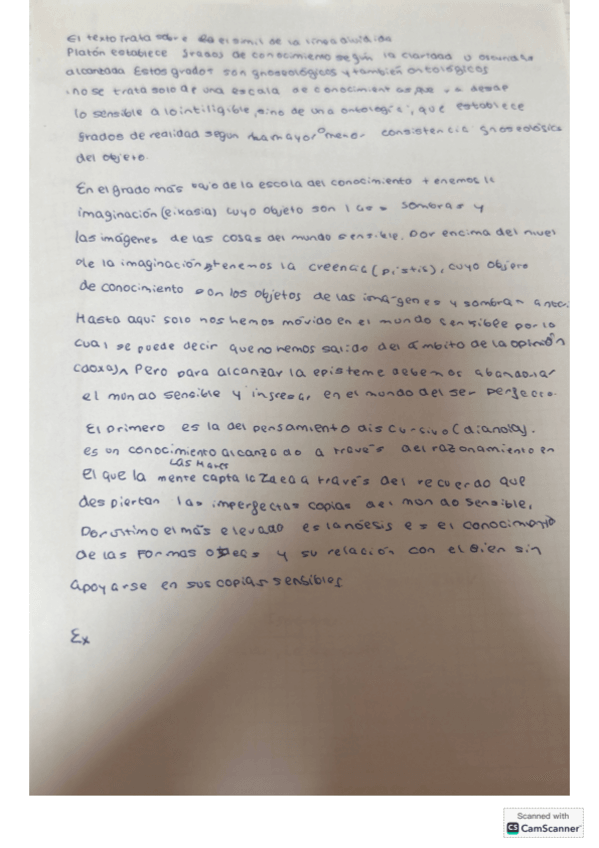 El texto trata sobre el simil de la linea dividida
Platón establece grados de conocimiento según la claridad u
alcanzada Estos grados son gnoseológicos y también ontológicos
no se trata solo de una escala de conocimient desde
lo sensible a lo intiligible, sino de una ontologia, que establece
grados de realidad segun la mayor o menor consistencia gnoseológica
del objeto.
En el grado más bajo de la escala del conocimiento tenemos la
imaginación (eikasia) cuyo objeto son las sombras y
las imágenes de las cosas del mundo sensible. Por encima del nivel
de la imaginación, tenemos la creencia (pistis), cuyo objero
de conocimiento son los objetos de las imágenes y sombras
Hasta aquí solo nos hemos móvido en el mundo sensible por lo
cual se puede decir que no hemos salido del ámbito de la opinión
(doxa), Pero para alcanzar la episteme debemos abandonar
el mundo sensible y ingresar en el mundo del ser perfecto.
El primero es la del pensamiento discursivo (dianoia).
es un conocimiento alcanzado a través del razonamiento en
el que la mente capta la Idea a través del recuerdo que
las
despiertan las imperfectas copias del mundo sensible,
Por último el más elevado es la nóesis es el conocimiento
de las formas o Ideas y su relación con el Bien sin
apoyarse en sus copias sensibles
Ex
Scanned with
CS CamScanner